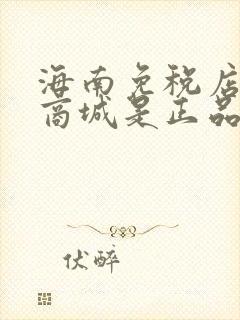 海南免税店
商城是正品
伏醉